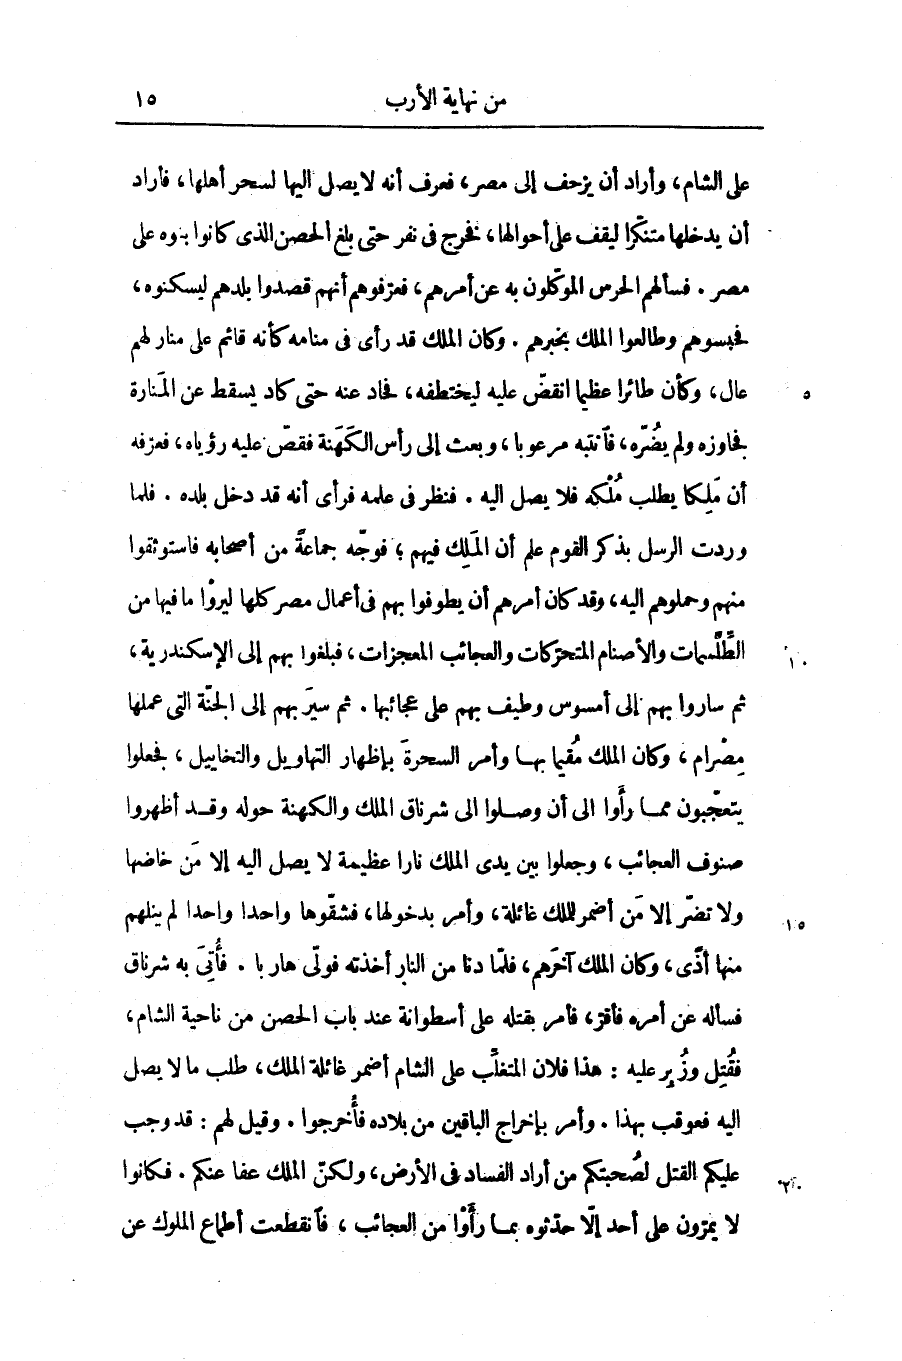 من نهاية الأرب ١٥
على الشام، وأراد أن يزحف إلى مصر، فعرف أنه لا يصل اليها لسحر أهلها، فأراد
أن يدخلها متنكّرا ليقف على أحوالها، فخرج فى نفر حتى بلغ الحصن الذى كانوا بنوه على
مصر . فسألهم الحرس الموكّلون به عن أمرهم، فعرّفوهم أنهم قصدوا بلدهم ليسكنوه،
فحبسوهم وطالعوا الملك بخبرهم . وكان الملك قد رأى فى منامه كأنه قائم على منار لهم
عال، وكأن طائرا عظيما انقضّ عليه ليختطفه، فحاد عنه حتى كاد يسقط عن المَنارة ٥
فجاوزه ولم يضُرّه، فآنتبه مرعوبا، وبعث إلى رأس الكَهَنة فقصّ عليه رؤياه، فعرّفه
أن مَلِكا يطلب مُلْكه فلا يصل اليه . فنظر فى علمه فرأى أنه قد دخل بلده . فلما
وردت الرسل بذكر القوم علم أن المَلِك فيهم؛ فوجّه جماعةً من أصحابه فاستوثقوا
منهم وحملوهم اليه، وقد كان أمرهم أن يطوفوا بهم فى أعمال مصر كلها ليروْا ما فيها من
الطِّلَّسمات والأصنام المتحرّكات والعجائب المعجزات، فبلغوا بهم إلى الإسكندرية، ١٠
ثم ساروا بهم إلى أمسوس وطيف بهم على عجائبها . ثم سيرَ بهم إلى الجنّة التى عملها
مِصْرام، وكان الملك مُقيما بهـا وأمر السحرةَ بإظهار التهاويل والتخاييل، فجعلوا
يتعجّبون ممـا رأَوا الى أن وصـلوا الى شرناق الملك والكهنة حوله وقـد أظهروا
صنوف العجائب، وجعلوا بين يدى الملك نارا عظيمة لا يصل اليه إلا مَن خاضها
ولا تضرّ إلا مَن أضمر للملك غائلة، وأمر بدخولها، فشقّوها واحدا واحدا لم ينلهم ١٥
منها أذًى، وكان الملك آخرَهم، فلمّا دنا من النار أخذته فولّى هاربا . فأُتِىَ به شرناق
فسأله عن أمره فأقرّ، فأمر بقتله على أسطوانة عند باب الحصن من ناحية الشام،
فقُتِل وزُبِر عليه : هذا فلان المتغلِّب على الشام أضمر غائلة الملك، طلب ما لا يصل
اليه فعوقب بهذا . وأمر بإخراج الباقين من بلاده فأُخرجوا . وقيل لهم : قد وجب
عليكم القتل لصُحبتكم من أراد الفساد فى الأرض، ولكنّ الملك عفا عنكم . فكانوا ٢٠
لا يمرّون على أحد إلّا حدّثوه بمـا رأَوْا من العجائب، فآنقطعت أطماع الملوك عن